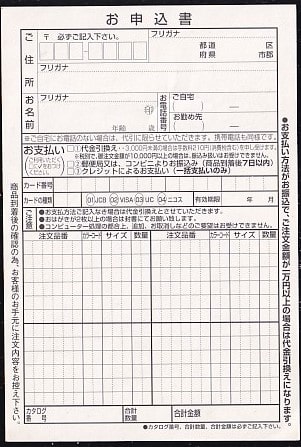 お申込書
〒 必ずご記入下さい。
フリガナ
ご住所
都道 区
府県 市郡
フリガナ
フリガナ
お名前
印
年齢 歳
ご自宅
( ) ー
お勤め先
( ) ー
※ご自宅にお電話のない場合は、代引に限らせていただきます。携帯電話も同様です。
お支払い
(ご利用いただく
□に✓をおつけ
ください。)
□①代金引換え…3,000円未満の場合は手数料210円(消費税含む)を申し受けます。
※税別で、総注文金額が10,000円以上の場合は、振り込み扱いはお受けできません。
□②郵便局又は、コンビニよりお振込み(商品到着後7日以内)
□③クレジットによるお支払い(一括支払いのみ)
カード番号
カードの種類
01JCB 02 VISA 03 UC 04ニコス
有効期限 年 月
ご注意
●お支払方法ご記入なき場合は代金引換えとさせていただきます。
●おはがきが2枚以上の場合は封書にてお願い致します。
●コンピューター処理の都合上、追加、お取消しなどのご要望はお受けできません。
注文品番 カラーコード サイズ 数量 注文品番 カラーコード サイズ 数量
カタログ番号
合計数量
合計金額
●カタログ番号、合計数量、合計金額は必ずご記入下さい。
●お支払い方法がお振込で、ご注文金額が一万円以上の場合は代金引換えになります。
商品到着後の確認の為、お客様のお手元に注文内容をお控え下さい。